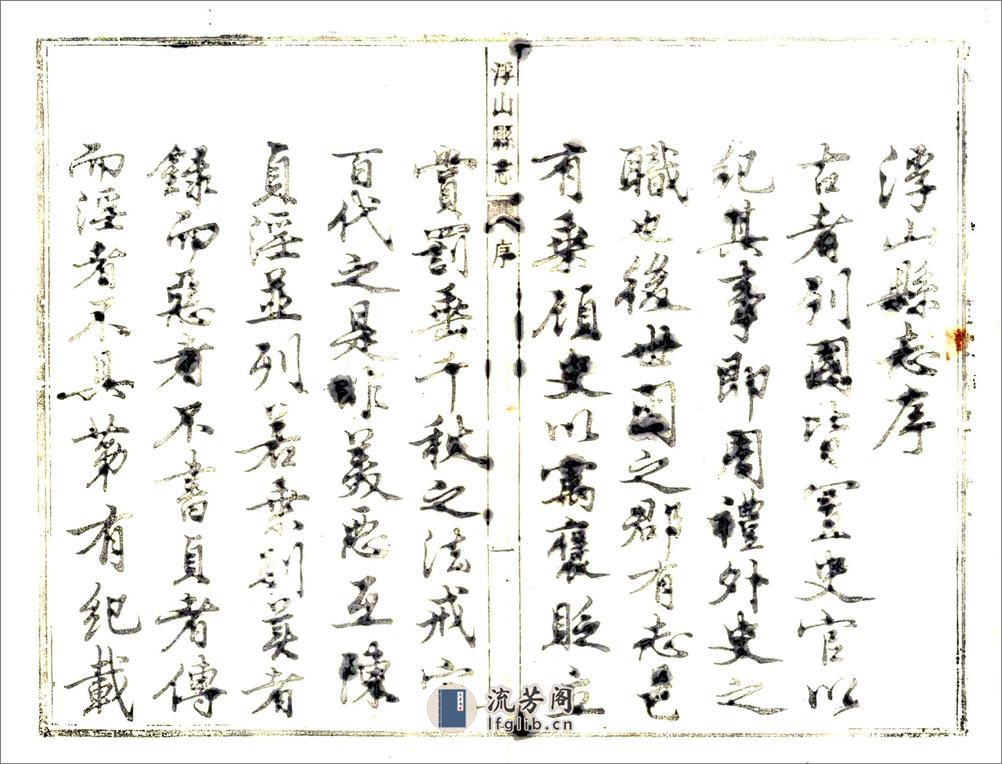 浮山縣志序
古者列國皆置史官以
紀其事即周禮外史之
職也後世國之郡有志邑
有乗顧史以寓褒貶立
浮山縣志
序
一
賞罰垂千秋之法戒定
百代之是非美惡互陳
貞淫並列若乗則美者
錄而惡者不書貞者傳
而淫者不具第有紀載
流芳阁
lfglib.cn